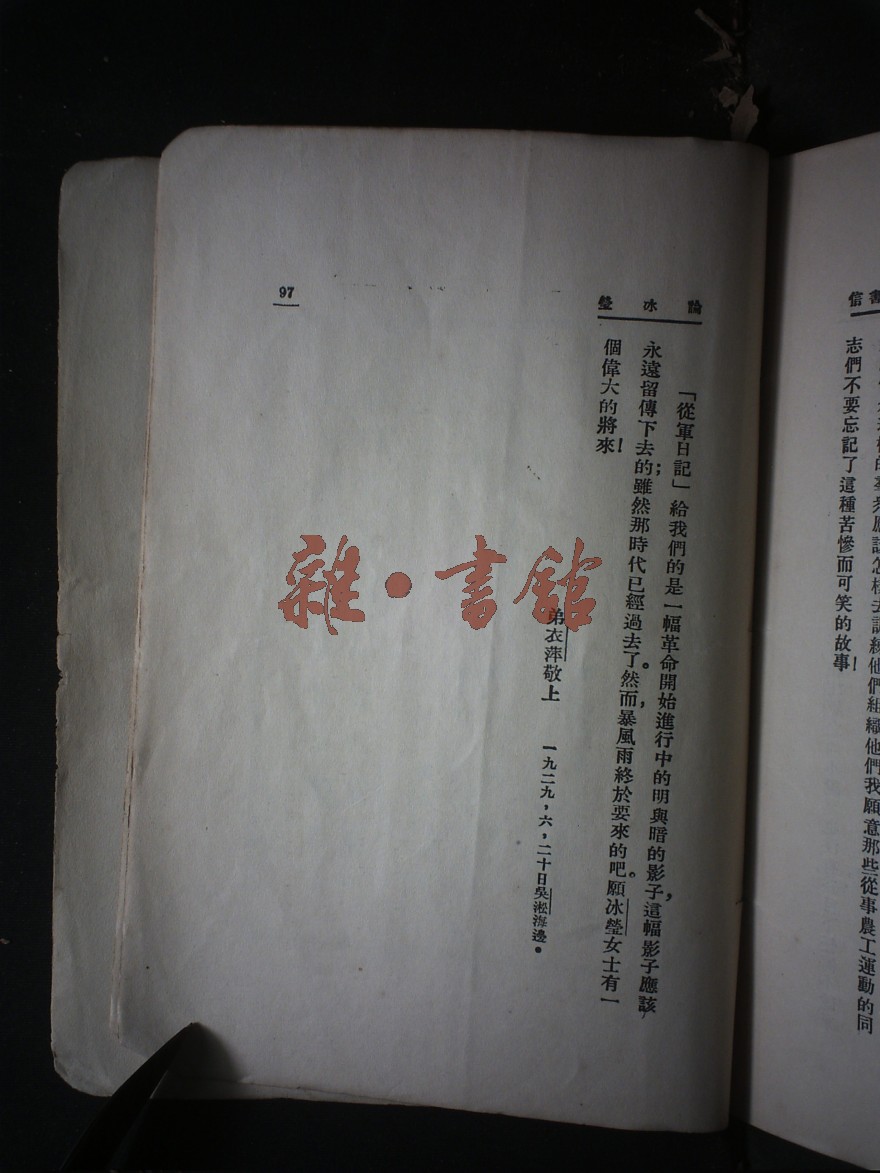 書信
志們不要忘記了這種苦慘而可笑的故事！
論冰瑩
「從軍日記」給我們的是一幅革命開始進行中的明與暗的影子，這幅影子應該
永遠留傳下去的；雖然那時代已經過去了。然而，暴風雨終於要來的吧。願冰瑩女士有一
個偉大的將來！
弟衣萍敬上
一九二九，六，二十日吳淞海邊。
97
雜·書館